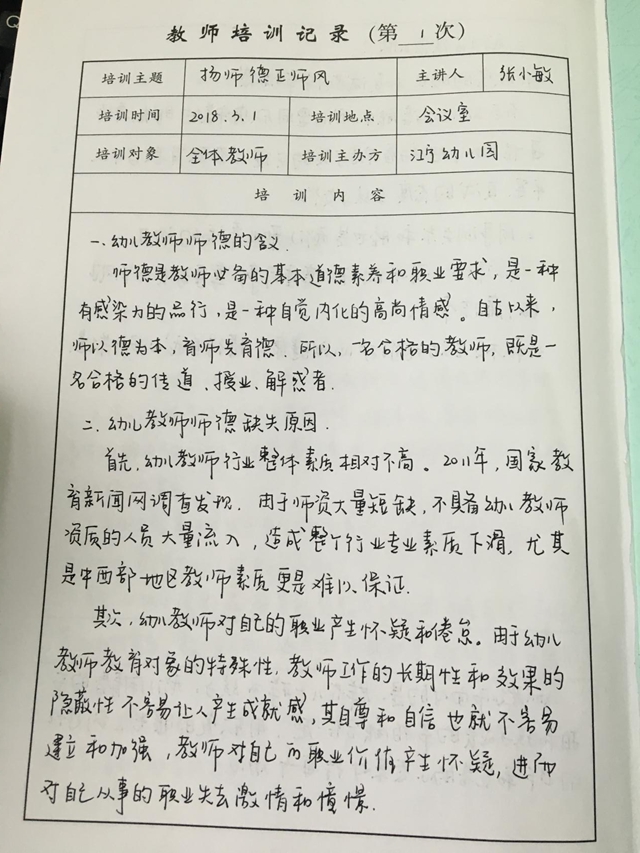 教师培训记录(第 1 次)
培训主题 扬师德正师风 主讲人 张小敏
培训时间 2018.3.1 培训地点 会议室
培训对象 全体教师 培训主办方 江宁幼儿园
培训内容
一.幼儿教师师德的含义.
师德是教师必备的基本道德素养和职业要求,是一种
有感染力的品行,是一种自觉内化的高尚情感。自古以来,
师以德为本,育师先育德.所以,一名合格的教师,既是一
名合格的传道、授业、解惑者.
二.幼儿教师师德缺失原因.
首先,幼儿教师行业整体素质相对不高。2011年,国家教
育新闻网调查发现.由于师资大量短缺,不具备幼儿教师
资质的人员大量流入,造成整个行业专业素质下滑,尤其
是中西部地区教师素质更是难以保证.
其次,幼儿教师对自己的职业产生怀疑和倦怠。由于幼儿
教师教育对象的特殊性,教师工作的长期性和效果的
隐蔽性不容易让人产生成就感,其自尊和自信也就不容易
建立和加强,教师对自己的职业价值产生怀疑,进而
对自己从事的职业失去激情和憧憬.